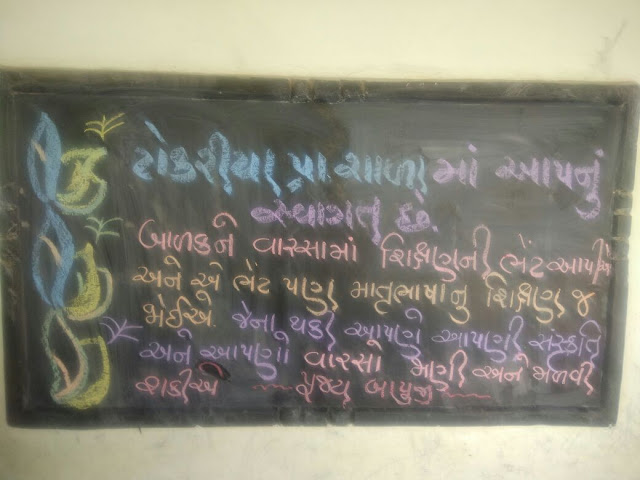 ટોકરીયા પ્રા.શાળા માં આપનું
સ્વાગત છે.
બાળકને વારસામાં શિક્ષણની ભેંટ આપીએ
અને એ ભેંટ પણ માતૃભાષાનુ શિક્ષણ જ
જોઈએ. જેના થકી આપણે આપણી સંસ્કૃતિ
અને આપણો વારસો માણી અને મેળવી
શકીએ પૂજ્ય બાપુજી